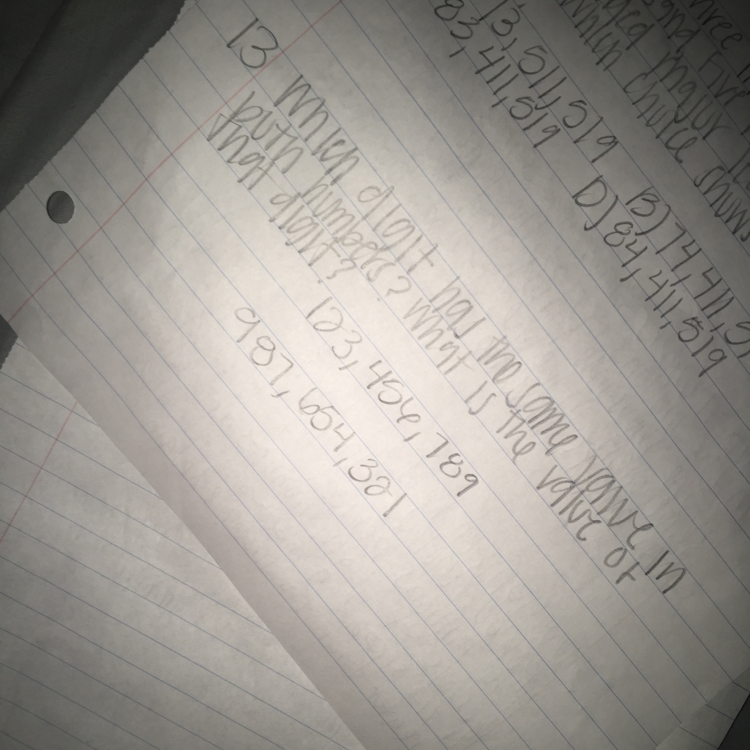 three
and five
major
Which choice shows
13,511,519 B) 74,411,5
83,411,519 D) 84,411,519
13 Which digit has the same valve in
both numbers? What is the valve of
that digit?
123,456,789
987,654,321